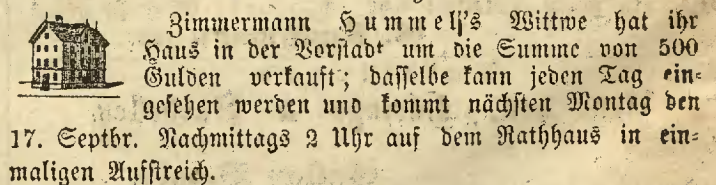 Zimmermann Hummel's Wittwe hat ihr
Haus in der Vorstadt um die Summe von 500
Gulden verkauft; dasselbe kann jeden Tag ein-
gesehen werden und kommt nächsten Montag den
17. Septbr. Nachmittags 2 Uhr auf dem Rathhaus in ein-
maligen Aufstreich.